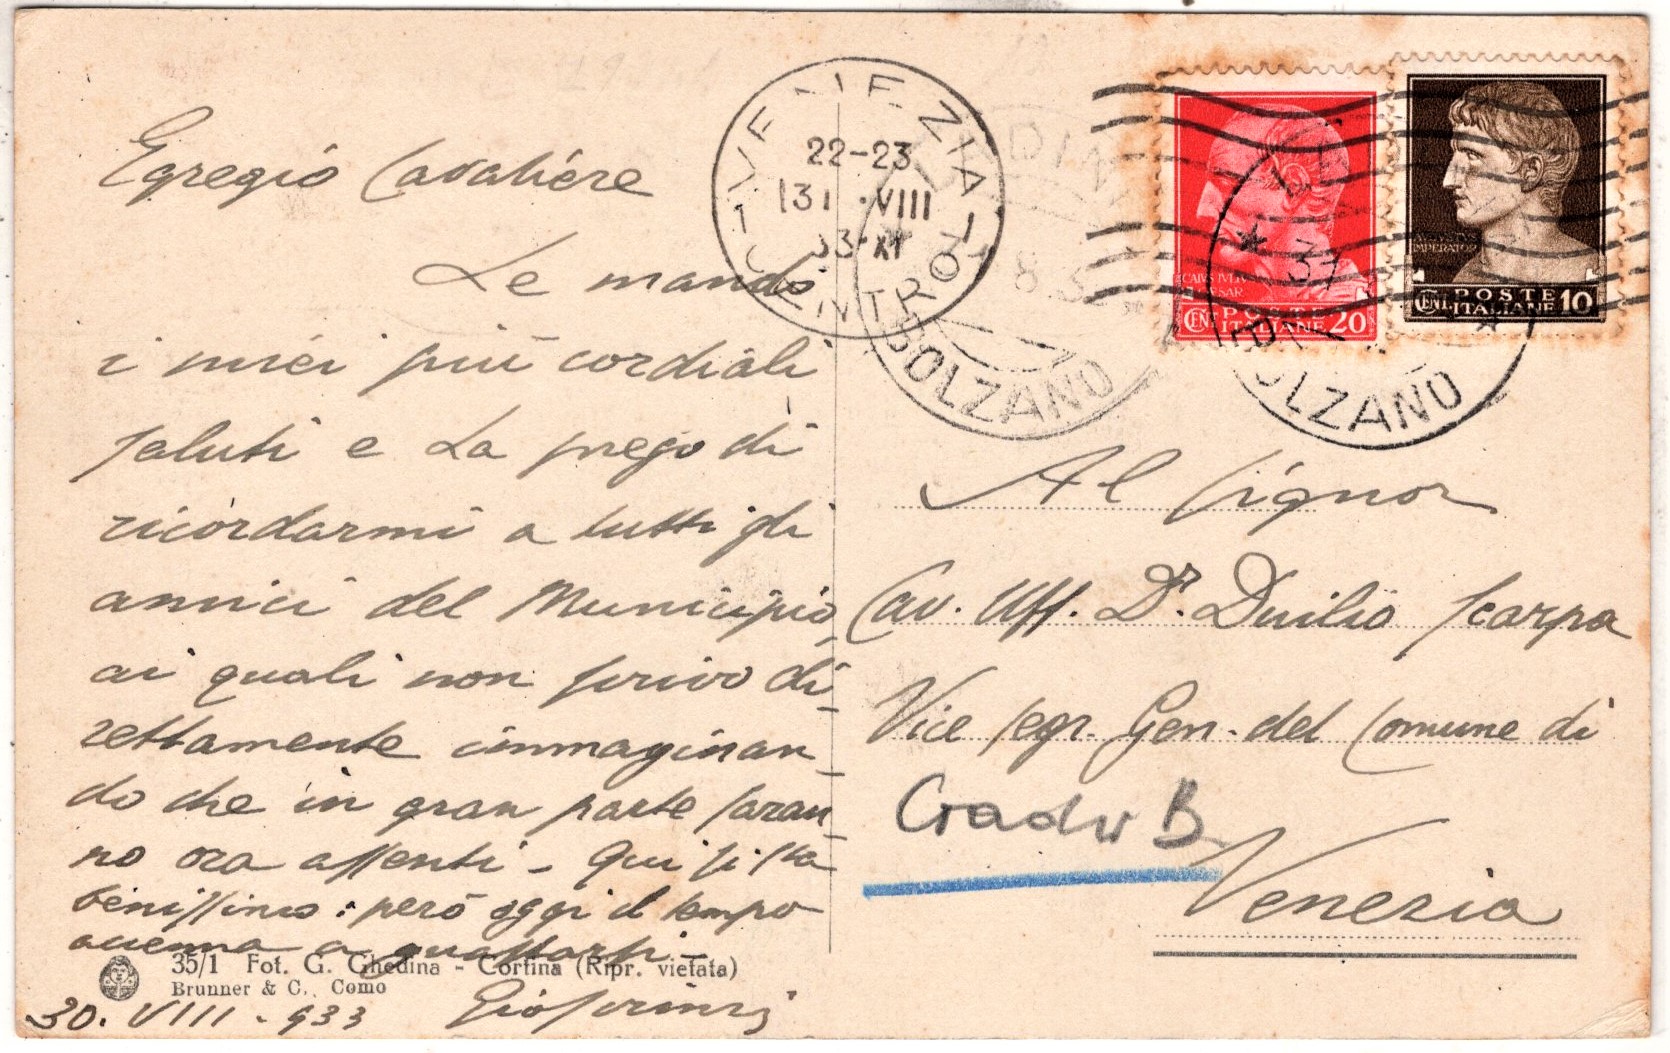 Egregio Cavaliere
Le mando
i miei più cordiali
saluti e La prego di
ricordarmi a tutti gli
amici del Municipio,
ai quali non scrivo di-
rettamente immaginan-
do che in gran parte saran-
no ora assenti - Qui si sta
benissimo: però oggi il tempo
accenna a guastarsi -
35/1 Fot. G. Ghedina - Cortina (Ripr. vietata)
Brunner & C., Como
30. VIII - 933
VENEZIA
22-23
31 · VIII
33-XI
CENTRO
BOLZANO
BOLZANO
CAIVS IVLIVS
CAESAR
CENT. 20
POSTE
ITALIANE
IMPERATOR
CENT. 10
POSTE
ITALIANE
Al Signor
Cav. Uff. Dr. Duilio Scarpa
Vice Segr. Gen. del Comune di
B
Venezia